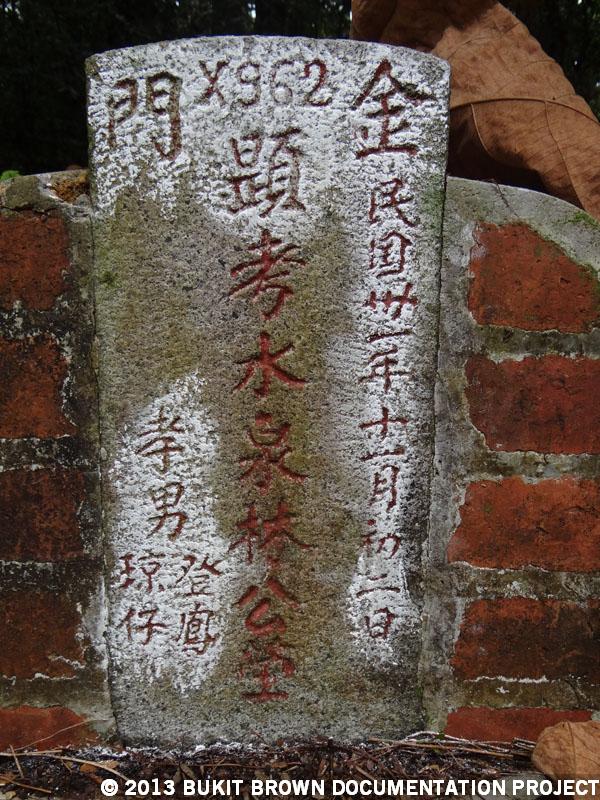 金門
X962
民国卅一年十一月初二日
顕考水泉椿公塋
孝男
登鳳
琼仔
© 2013 BUKIT BROWN DOCUMENTATION PROJECT